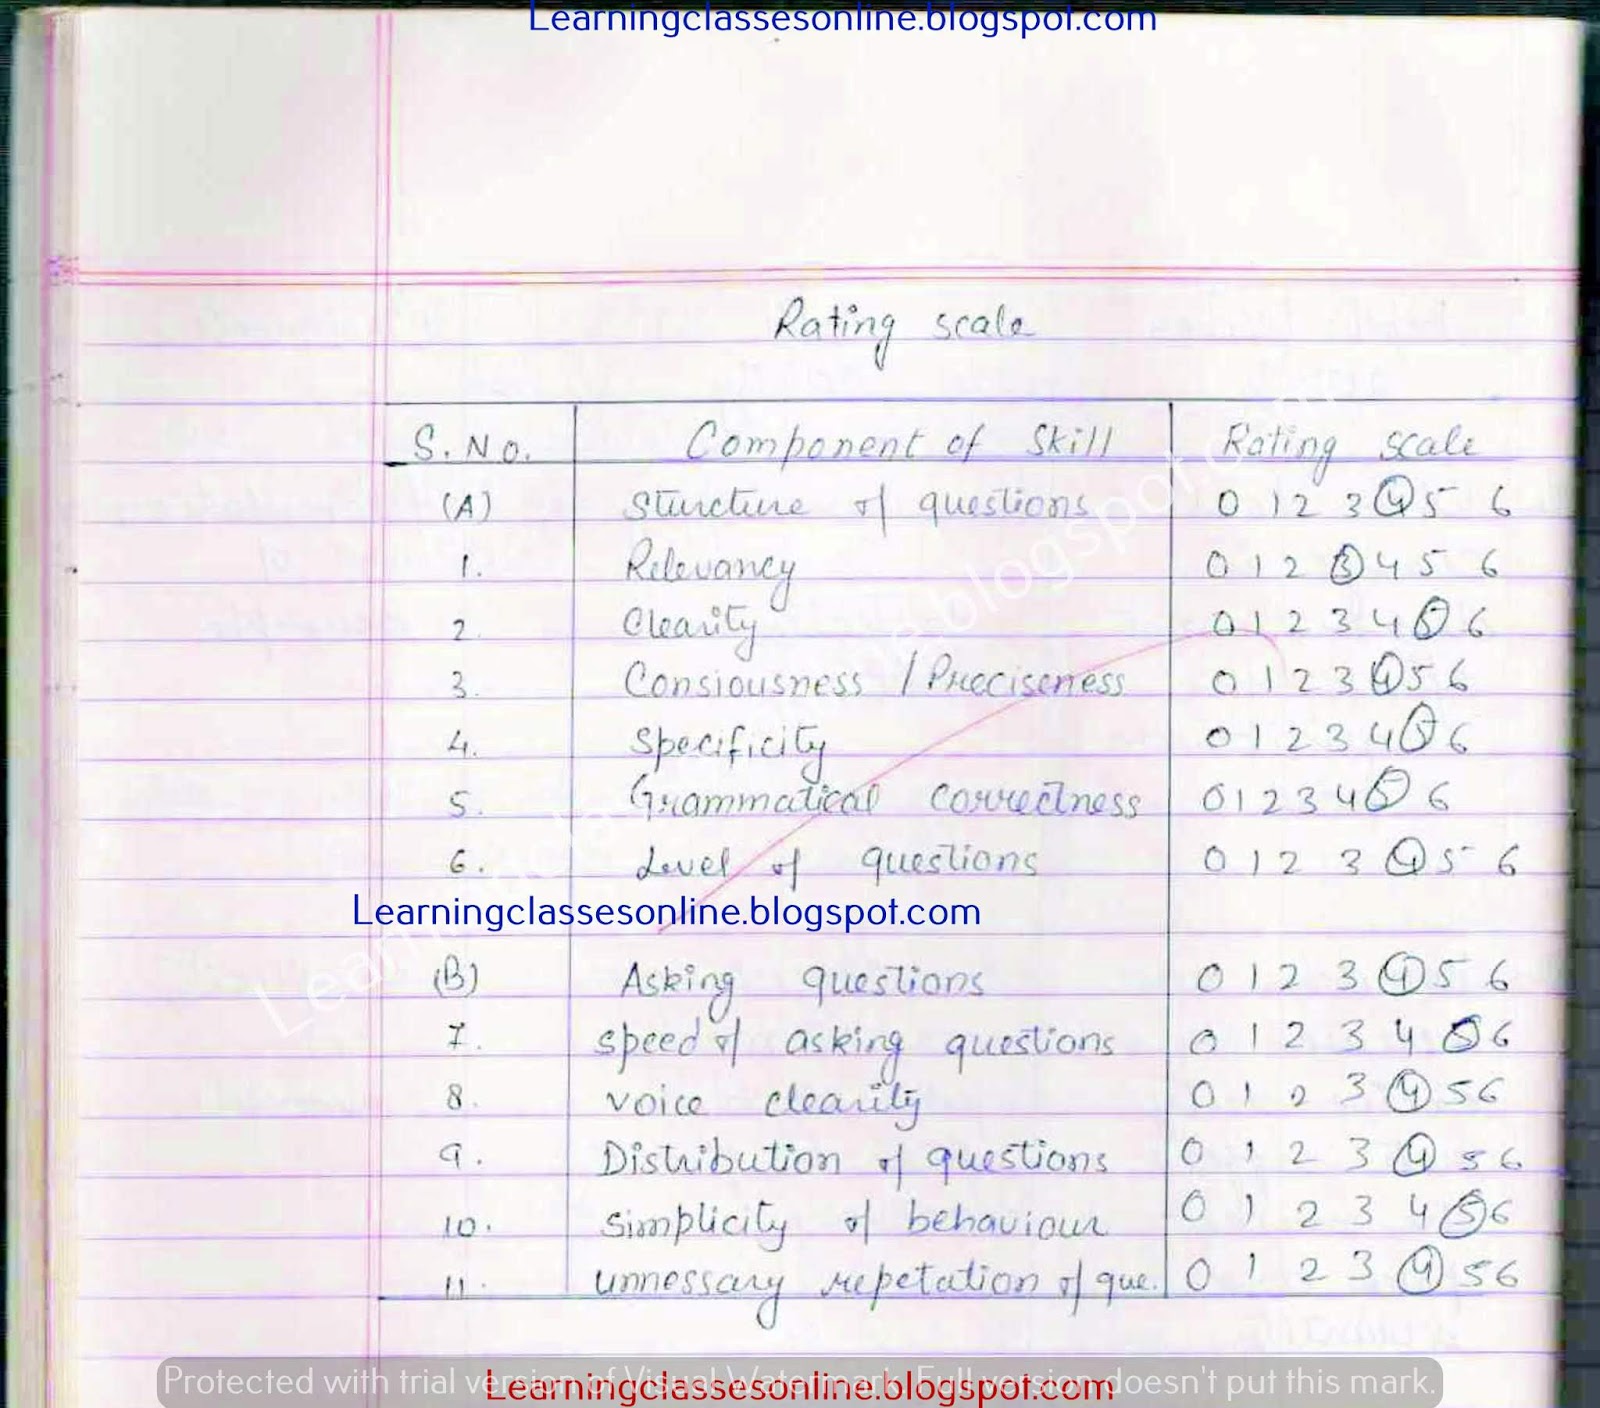 Learningclassesonline.blogspot.com
Rating scale
S.No. Component of Skill Rating scale
(A) Sturcture of questions 0 1 2 3 4 5 6
1. Relevancy 0 1 2 3 4 5 6
2. Clearity 0 1 2 3 4 5 6
3. Consiousness / Preciseness 0 1 2 3 4 5 6
4. Specificity 0 1 2 3 4 5 6
5. Grammatical correctness 0 1 2 3 4 5 6
6. Level of questions 0 1 2 3 4 5 6
Learningclassesonline.blogspot.com
(B) Asking questions 0 1 2 3 4 5 6
7. speed of asking questions 0 1 2 3 4 5 6
8. voice clearity 0 1 2 3 4 5 6
9. Distribution of questions 0 1 2 3 4 5 6
10. simplicity of behaviour 0 1 2 3 4 5 6
11. unnessary repetation of que. 0 1 2 3 4 5 6
Protected with trial version of Visual Watermark. Full version doesn't put this mark.
Learningclassesonline.blogspot.com